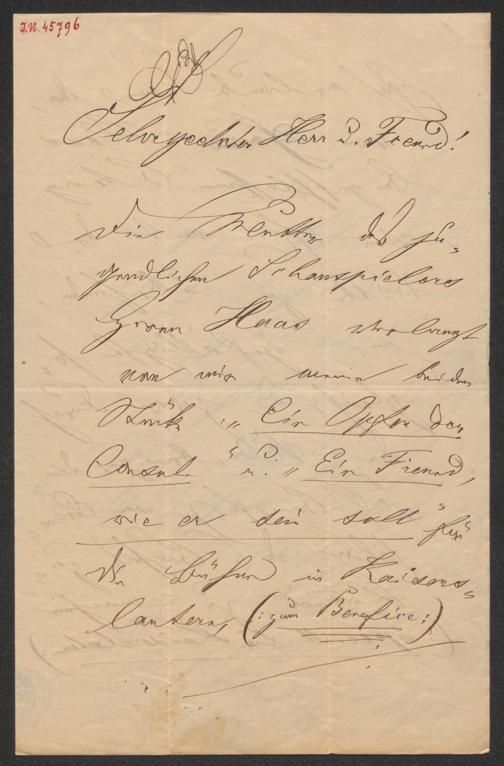 J.N. 45796
Sehr geehrter Herr D. Freund!
Die Mutter des ju-
gendlichen Schauspielers
Herrn Haas verlangt
von mir meine beiden
Stücke: „Ein Opfer der
Consul“ u. „Ein Freund,
wie er sein soll“ für
die Bühne in Kaisers-
lautern, (: zum Benefice :)